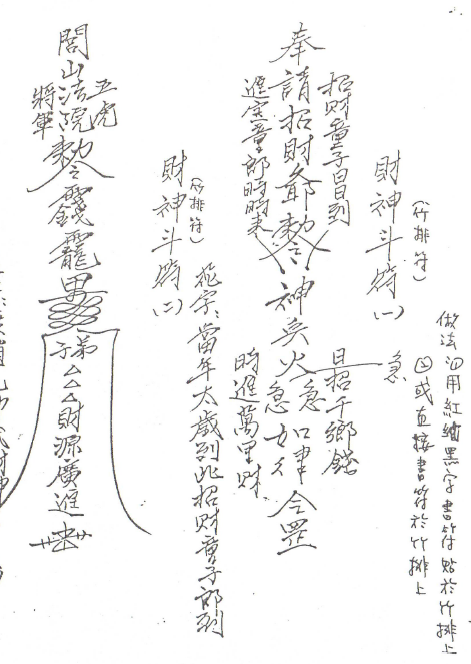 做法(1)用紅綢黑字書符貼於竹排上
(2)或直接書符於竹排上
財神斗符(一)
(竹排符)
招財童子日日到
奉請招財爺勅令神兵火急急如律令罡
進寶童郎時時來
日招千鄉錢
時進萬里財
急
花字:當年太歲到此招財童子郎到
財神斗符(二)
(竹排符)
五虎
閭山法院勅令
將軍
弟子△△△財源廣進